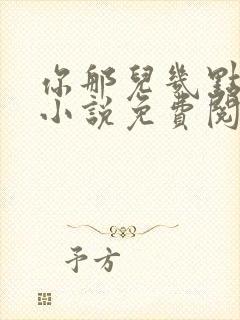 你那兒幾點
小說免費閱
予方